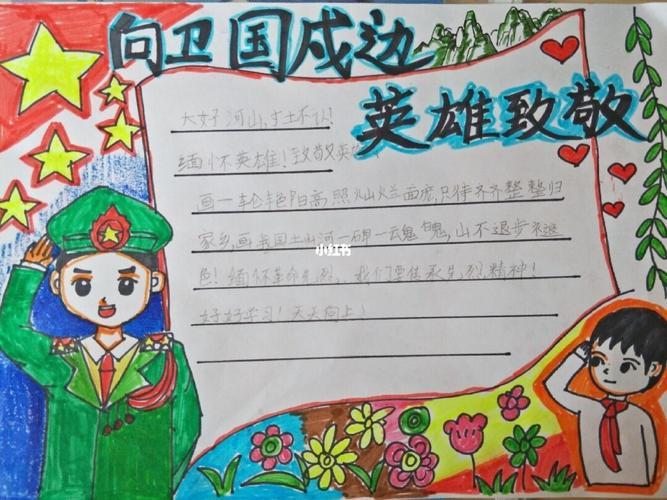 向卫国戍边
英雄致敬
大好河山,寸土不让!
缅怀英雄!致敬英
画一轮艳阳高照灿烂面庞,只待齐齐整整归
家乡,画我国土山河一碑一魂魄,山不退步不退
色!缅怀革命先烈,我们要传承先烈精神!
好好学习!天天向上!
小红书